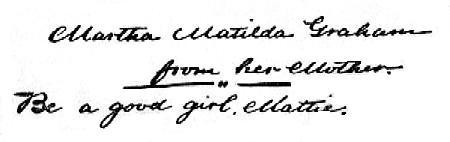 Martha Matilda Graham
from her Mother.
Be a good girl, Mattie.